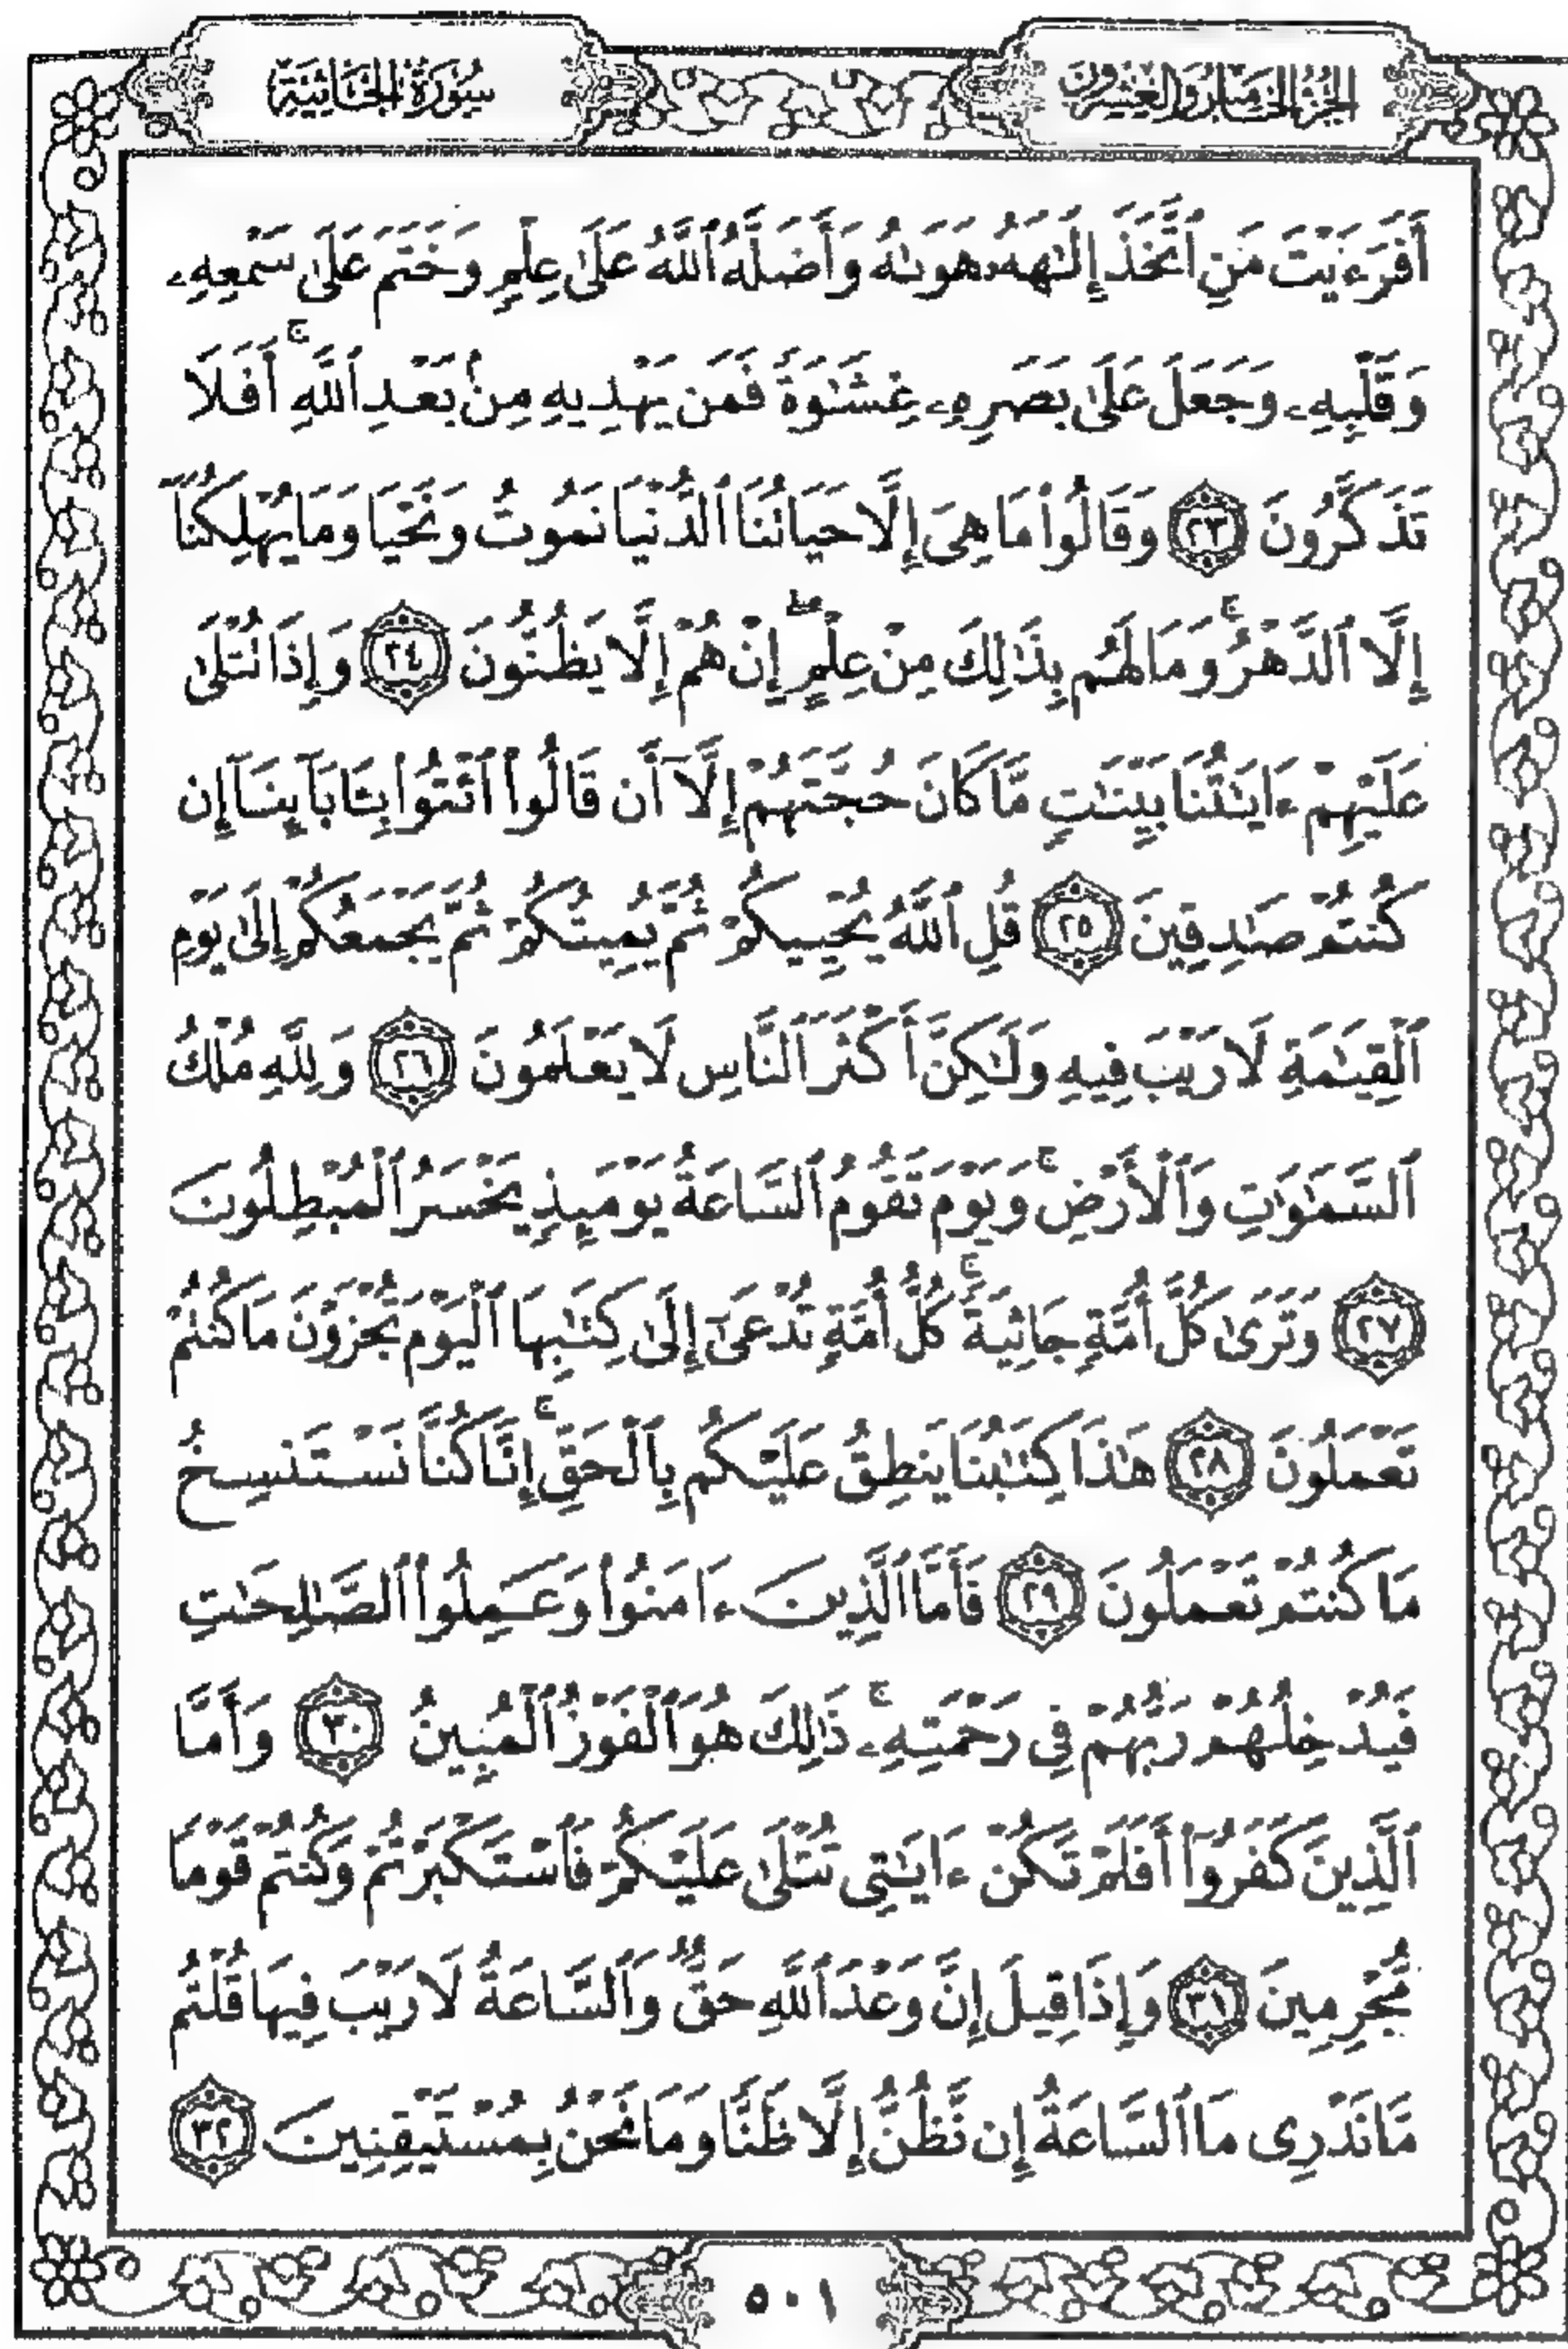 الجزء الخامس والعشرون
سورة الجاثية
أَفَرَءَيْتَ مَنِ ٱتَّخَذَ إِلَـٰهَهُۥ هَوَىٰهُ وَأَضَلَّهُ ٱللَّهُ عَلَىٰ عِلْمٍ وَخَتَمَ عَلَىٰ سَمْعِهِۦ
وَقَلْبِهِۦ وَجَعَلَ عَلَىٰ بَصَرِهِۦ غِشَـٰوَةً فَمَن يَهْدِيهِ مِنۢ بَعْدِ ٱللَّهِ ۚ أَفَلَا
تَذَكَّرُونَ ٢٣ وَقَالُوا۟ مَا هِىَ إِلَّا حَيَاتُنَا ٱلدُّنْيَا نَمُوتُ وَنَحْيَا وَمَا يُهْلِكُنَآ
إِلَّا ٱلدَّهْرُ ۚ وَمَا لَهُم بِذَٰلِكَ مِنْ عِلْمٍ ۖ إِنْ هُمْ إِلَّا يَظُنُّونَ ٢٤ وَإِذَا تُتْلَىٰ
عَلَيْهِمْ ءَايَـٰتُنَا بَيِّنَـٰتٍ مَّا كَانَ حُجَّتَهُمْ إِلَّآ أَن قَالُوا۟ ٱئْتُوا۟ بِـَٔابَآئِنَآ إِن
كُنتُمْ صَـٰدِقِينَ ٢٥ قُلِ ٱللَّهُ يُحْيِيكُمْ ثُمَّ يُمِيتُكُمْ ثُمَّ يَجْمَعُكُمْ إِلَىٰ يَوْمِ
ٱلْقِيَـٰمَةِ لَا رَيْبَ فِيهِ وَلَـٰكِنَّ أَكْثَرَ ٱلنَّاسِ لَا يَعْلَمُونَ ٢٦ وَلِلَّهِ مُلْكُ
ٱلسَّمَـٰوَٰتِ وَٱلْأَرْضِ ۚ وَيَوْمَ تَقُومُ ٱلسَّاعَةُ يَوْمَئِذٍ يَخْسَرُ ٱلْمُبْطِلُونَ
٢٧ وَتَرَىٰ كُلَّ أُمَّةٍ جَاثِيَةً ۚ كُلُّ أُمَّةٍ تُدْعَىٰٓ إِلَىٰ كِتَـٰبِهَا ٱلْيَوْمَ تُجْزَوْنَ مَا كُنتُمْ
تَعْمَلُونَ ٢٨ هَـٰذَا كِتَـٰبُنَا يَنطِقُ عَلَيْكُم بِٱلْحَقِّ ۚ إِنَّا كُنَّا نَسْتَنسِخُ
مَا كُنتُمْ تَعْمَلُونَ ٢٩ فَأَمَّا ٱلَّذِينَ ءَامَنُوا۟ وَعَمِلُوا۟ ٱلصَّـٰلِحَـٰتِ
فَيُدْخِلُهُمْ رَبُّهُمْ فِى رَحْمَتِهِۦ ۚ ذَٰلِكَ هُوَ ٱلْفَوْزُ ٱلْمُبِينُ ٣٠ وَأَمَّا
ٱلَّذِينَ كَفَرُوٓا۟ أَفَلَمْ تَكُنْ ءَايَـٰتِى تُتْلَىٰ عَلَيْكُمْ فَٱسْتَكْبَرْتُمْ وَكُنتُمْ قَوْمًا
مُّجْرِمِينَ ٣١ وَإِذَا قِيلَ إِنَّ وَعْدَ ٱللَّهِ حَقٌّ وَٱلسَّاعَةُ لَا رَيْبَ فِيهَا قُلْتُم
مَّا نَدْرِى مَا ٱلسَّاعَةُ إِن نَّظُنُّ إِلَّا ظَنًّا وَمَا نَحْنُ بِمُسْتَيْقِنِينَ ٣٢
٥٠١